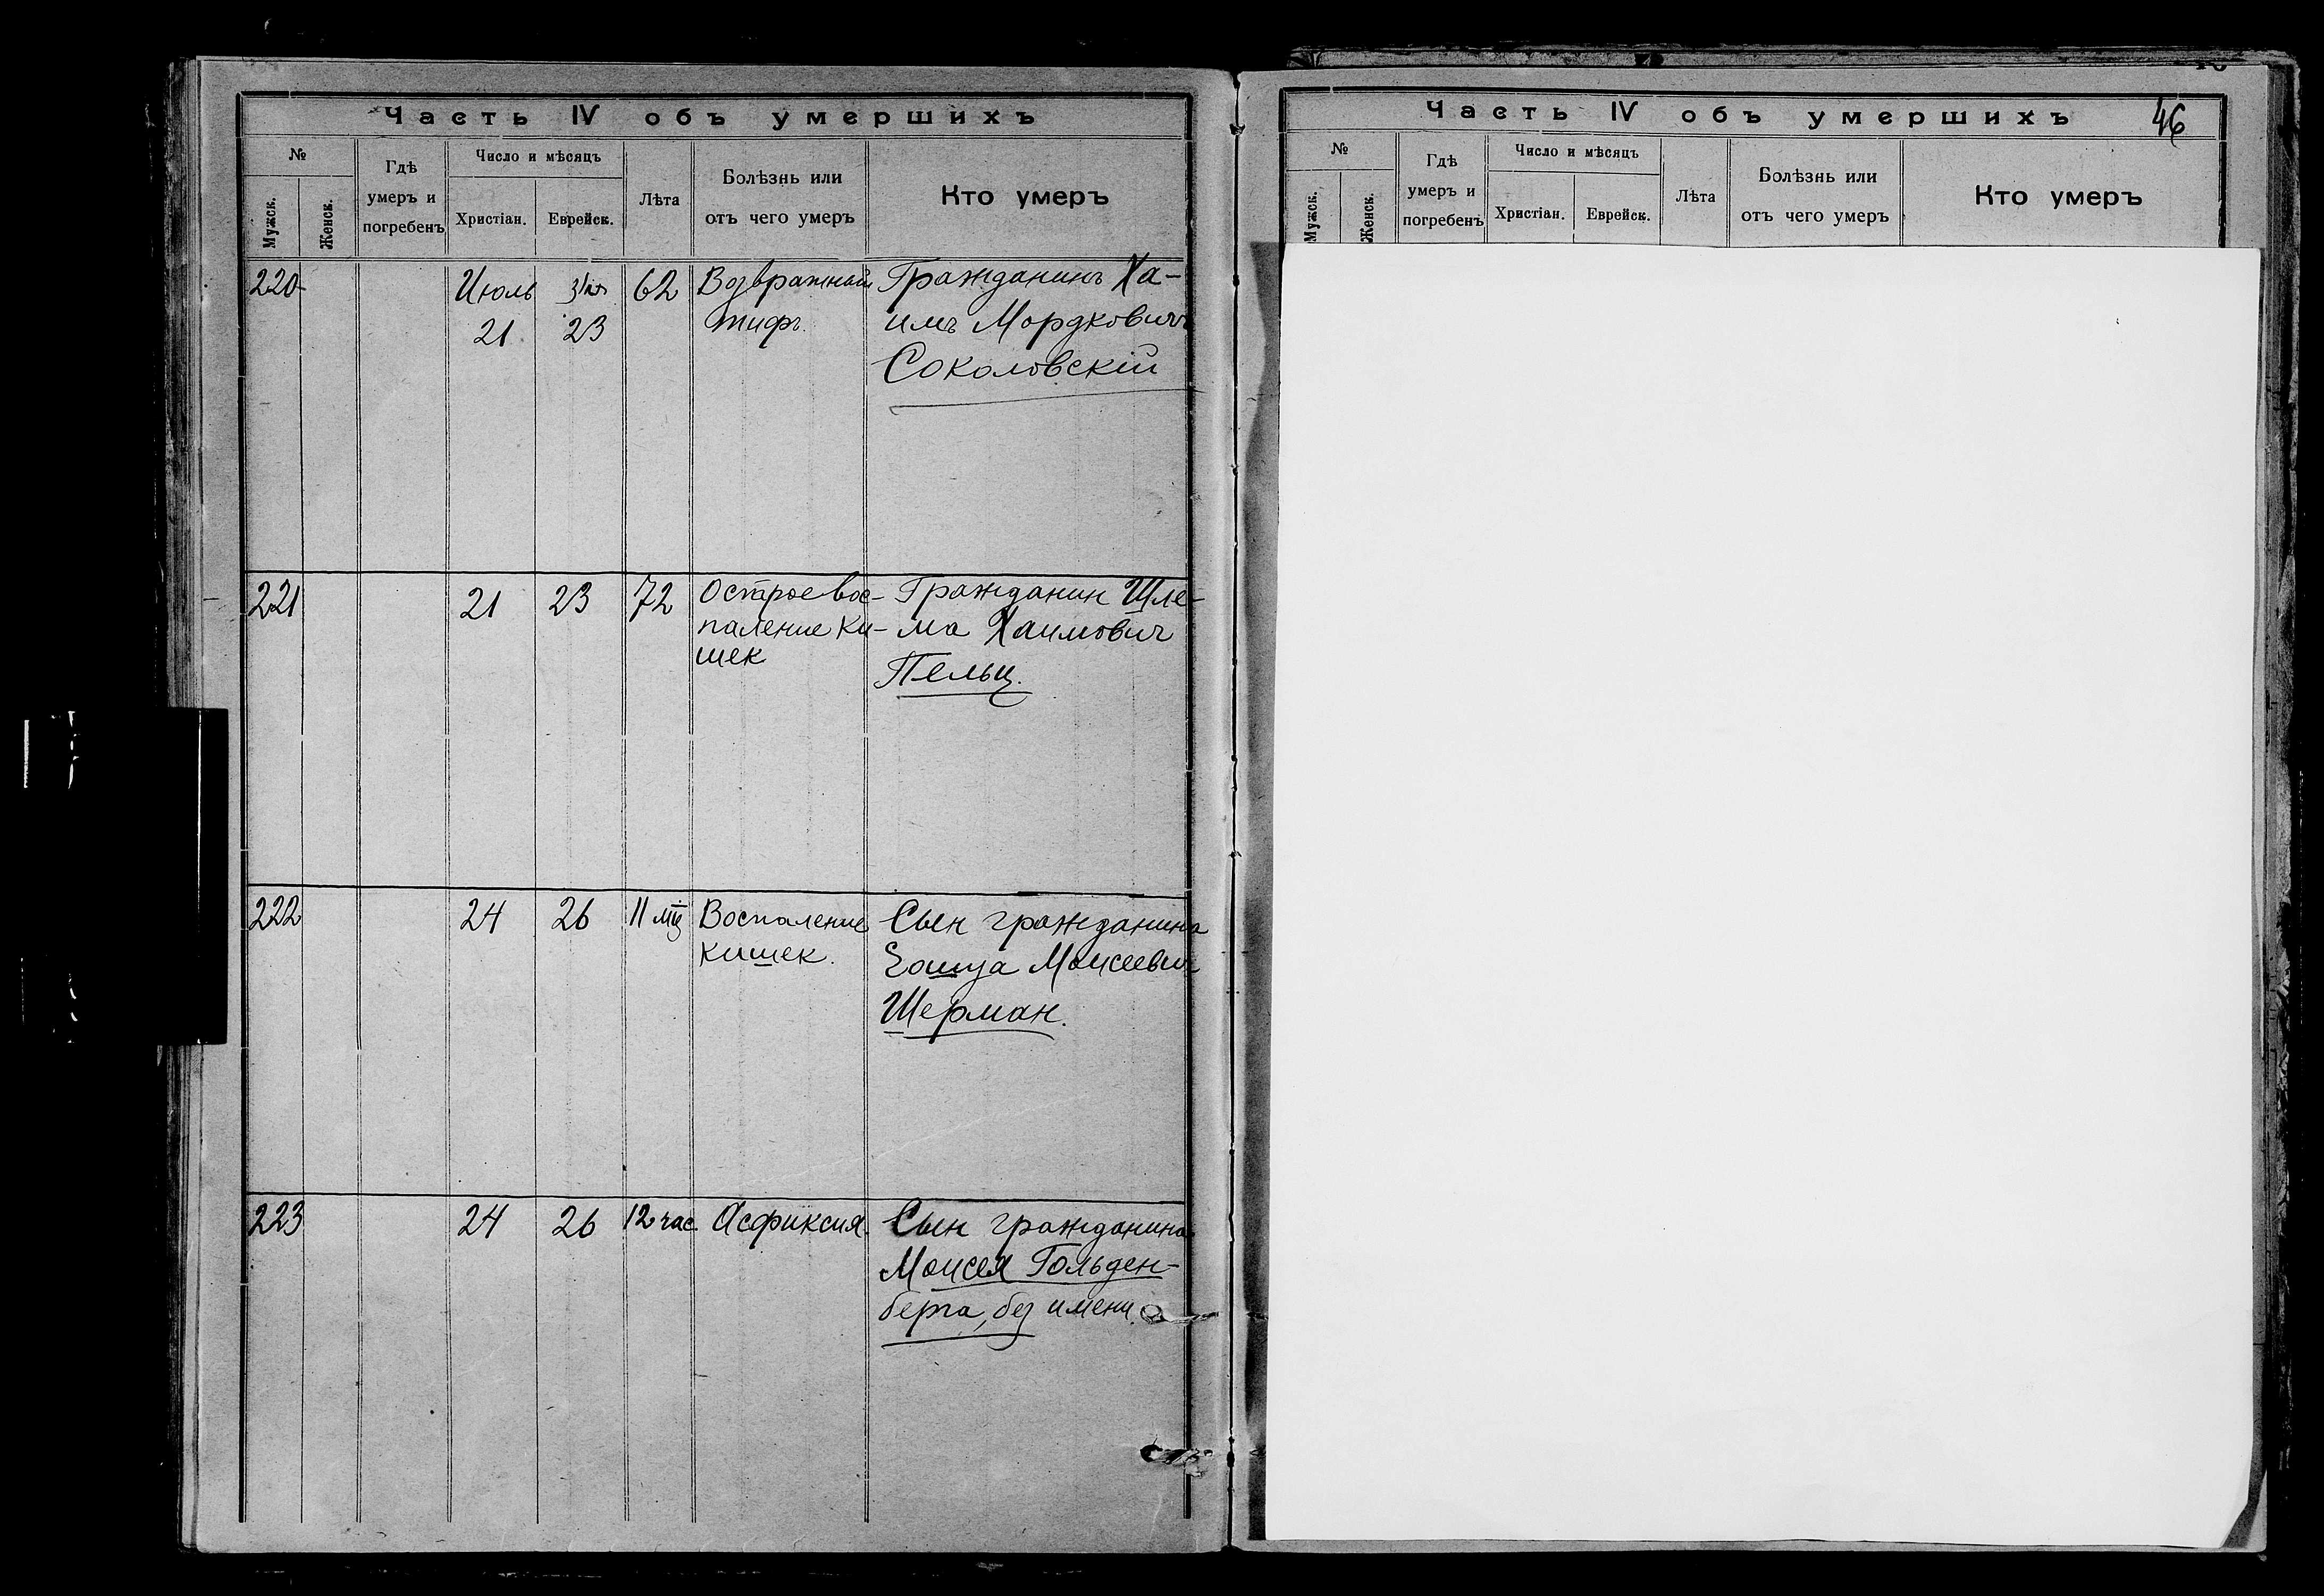 Часть IV объ умершихъ
№
Мужск.
Женск.
Гдѣ
умеръ и
погребенъ
Число и мѣсяцъ
Христіан.
Еврейск.
Лѣта
Болѣзнь или
отъ чего умеръ
Кто умеръ
220
Июль
21
23
62
Возвратный
тифъ.
Гражданинъ Ха-
имъ Мордковичъ
Соколовскій
221
21
23
72
Острое вос-
паление ки-
шек
Гражданин Шле-
ма Хаимович
Пельц.
222
24
26
11 мц
Воспаление
кишек.
Сын гражданина
Моисеевич
Шерман.
223
24
26
12 час.
Асфиксия.
Сын гражданина
Моисея Гольден-
берга, без имени.
Часть IV объ умершихъ
46
№
Мужск.
Женск.
Гдѣ
умеръ и
погребенъ
Число и мѣсяцъ
Христіан.
Еврейск.
Лѣта
Болѣзнь или
отъ чего умеръ
Кто умеръ